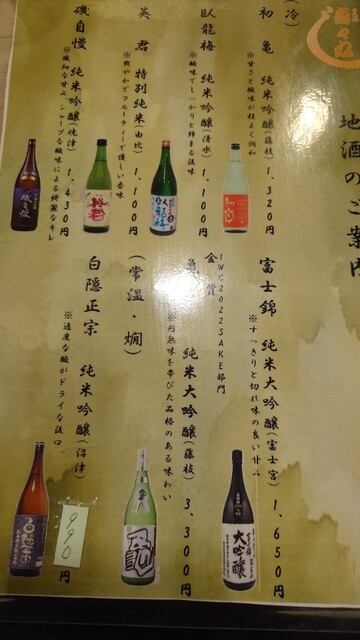 地酒のご案内
(冷)
初亀 純米吟醸(藤枝) 1,320円
※甘さと酸味が程よく調和
臥龍梅 純米吟醸(清水) 1,100円
※酸味でしっかりと締まる後味
英君 特別純米(由比) 1,100円
※爽やかでフルーティーで優しい香味
磯自慢 純米吟醸(焼津) 1,430円
※繊細な甘み、シャープな酸味による綺麗なキレ
富士錦 純米大吟醸(富士宮) 1,650円
※すっきりと切れ味の良い甘口
IWC2022SAKE部門
金賞
純米大吟醸(藤枝) 3,300円
※円熟味を帯びた品格のある味わい
(常温・燗)
白隠正宗 純米吟醸(沼津) 990円
※適度な酸がドライな辛口
大吟醸